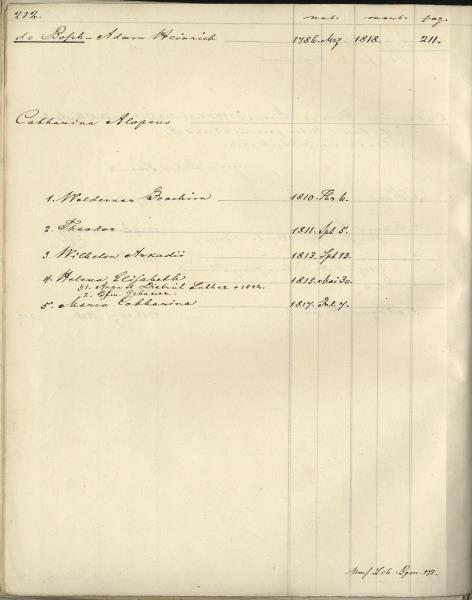 212. nat. mort. pag.
de Bosh - Adam Heinrich 1786. Mrz 1818. 211.
Catharina Alopeus
1. Woldemar Joachim 1810. 6.
2. Theodor 1811. Spt 5.
3. Wilhelm Arkadii 1813. Spt 13.
4. Helena Elisabeth 1815. Mai 30.
Dietrich Luther + 1822.
2.
5. Maria Catharina 1817. Jul. 7.